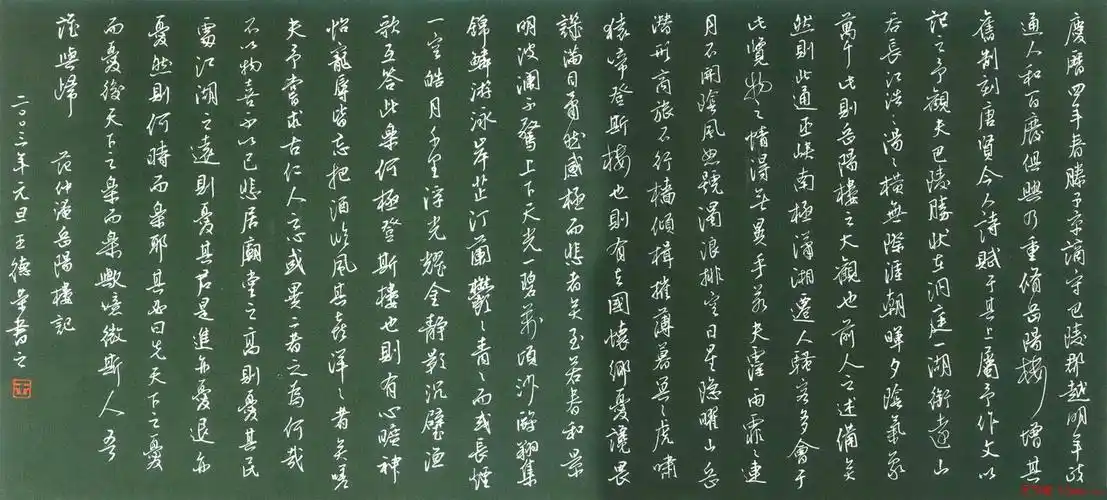 慶曆四年春滕子京謫守巴陵郡越明年政
通人和百廢俱興乃重脩岳陽樓增其
舊制刻唐賢今人詩賦于其上屬予作文以
記之予觀夫巴陵勝狀在洞庭一湖銜遠山
吞長江浩〻湯〻橫無際涯朝暉夕陰氣象
萬千此則岳陽樓之大觀也前人之述備矣
然則北通巫峽南極瀟湘遷人騷客多會于
此覽物之情得無異乎若夫霪雨霏〻連
月不開陰風怒號濁浪排空日星隱曜山岳
潛形商旅不行檣傾楫摧薄暮冥〻虎嘯
猿啼登斯樓也則有去國懷鄉憂讒畏
譏滿目蕭然感極而悲者矣至若春和景
明波瀾不驚上下天光一碧萬頃沙鷗翔集
錦鱗游泳岸芷汀蘭鬱〻青〻而或長煙
一空皓月千里浮光耀金靜影沉璧漁
歌互答此樂何極登斯樓也則有心曠神
怡寵辱皆忘把酒臨風其喜洋〻者矣嗟
夫予嘗求古仁人之心或異二者之為何哉
不以物喜不以己悲居廟堂之高則憂其民
處江湖之遠則憂其君是進亦憂退亦
憂然則何時而樂耶其必曰先天下之憂
而憂後天下之樂而樂歟噫微斯人吾
誰與歸 范仲淹岳陽樓記
二〇〇三年元旦王德書之